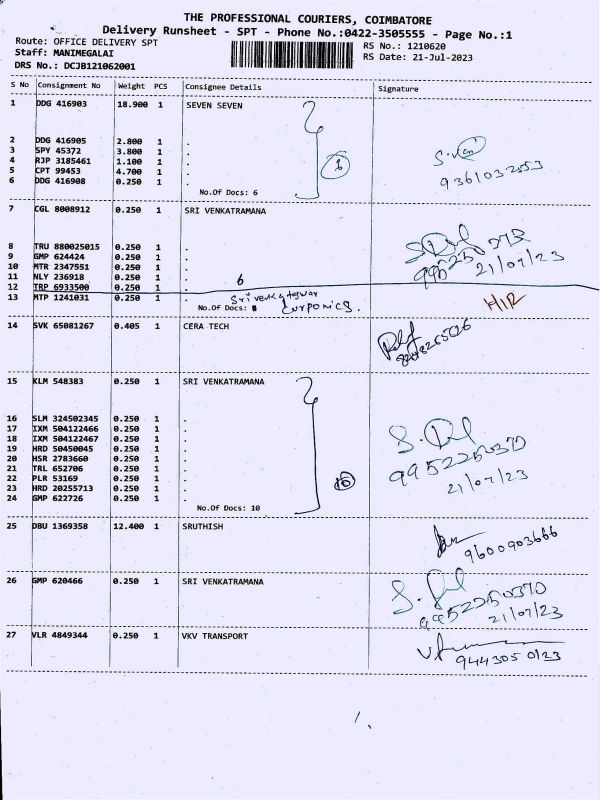 THE PROFESSIONAL COURIERS, COIMBATORE
Delivery Runsheet - SPT - Phone No.:0422-3505555 - Page No.:1
Route: OFFICE DELIVERY SPT
Staff: MANIMEGALAI
DRS No.: DCJB121062001
RS No.: 1210620
RS Date: 21-Jul-2023
S No Consignment No Weight PCS Consignee Details Signature
1 DDG 416903 18.900 1 SEVEN SEVEN
2 DDG 416905 2.800 1 .
3 SPY 45372 3.800 1 .
4 RJP 3185461 1.100 1 .
5 CPT 99453 4.700 1 .
6 DDG 416908 0.250 1 .
No.Of Docs: 6
7 CGL 8008912 0.250 1 SRI VENKATRAMANA
8 TRU 880025015 0.250 1 .
9 GMP 624424 0.250 1 .
10 MTR 2347551 0.250 1 .
11 NLY 236918 0.250 1 .
6
12 TRP 6933500 0.250 1 .
13 MTP 1241031 0.250 1 .
No.Of Docs:
21/07/23
14 SVK 65081267 0.405 1 CERA TECH
15 KLM 548383 0.250 1 SRI VENKATRAMANA
16 SLM 324502345 0.250 1 .
17 IXM 504122466 0.250 1 .
18 IXM 504122467 0.250 1 .
19 HRD 50450045 0.250 1 .
20 HSR 2783660 0.250 1 .
21 TRL 652706 0.250 1 .
22 PLR 53169 0.250 1 .
23 HRD 20255713 0.250 1 .
24 GMP 622726 0.250 1 .
No.Of Docs: 10
10
9952250370
21/07/23
25 DBU 1369358 12.400 1 SRUTHISH
9600903666
26 GMP 620466 0.250 1 SRI VENKATRAMANA
9952250370
21/07/23
27 VLR 4849344 0.250 1 VKV TRANSPORT
9443050123